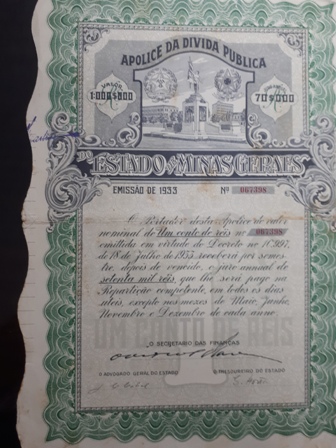 APOLICE DA DIVIDA PUBLICA
VALOR
1:000$000
70$000
DO ESTADO DE MINAS GERAES
EMISSÃO DE 1933 Nº 067398
O Portador desta Apolice do valor
nominal de Um conto de réis nº 067398
emittida em virtude do Decreto nº
de 18 de Julho de 1933, receberá por semes-
tre, depois de vencido, o juro annual de
setenta mil réis que lhe será pago na
Repartição competente, em todos os dias
uteis, excepto nos mezes de Maio, Junho,
Novembro e Dezembro de cada anno.
UM CONTO DE RÉIS
O SECRETARIO DAS FINANÇAS
O ADVOGADO GERAL DO ESTADO
O THESOUREIRO DO ESTADO